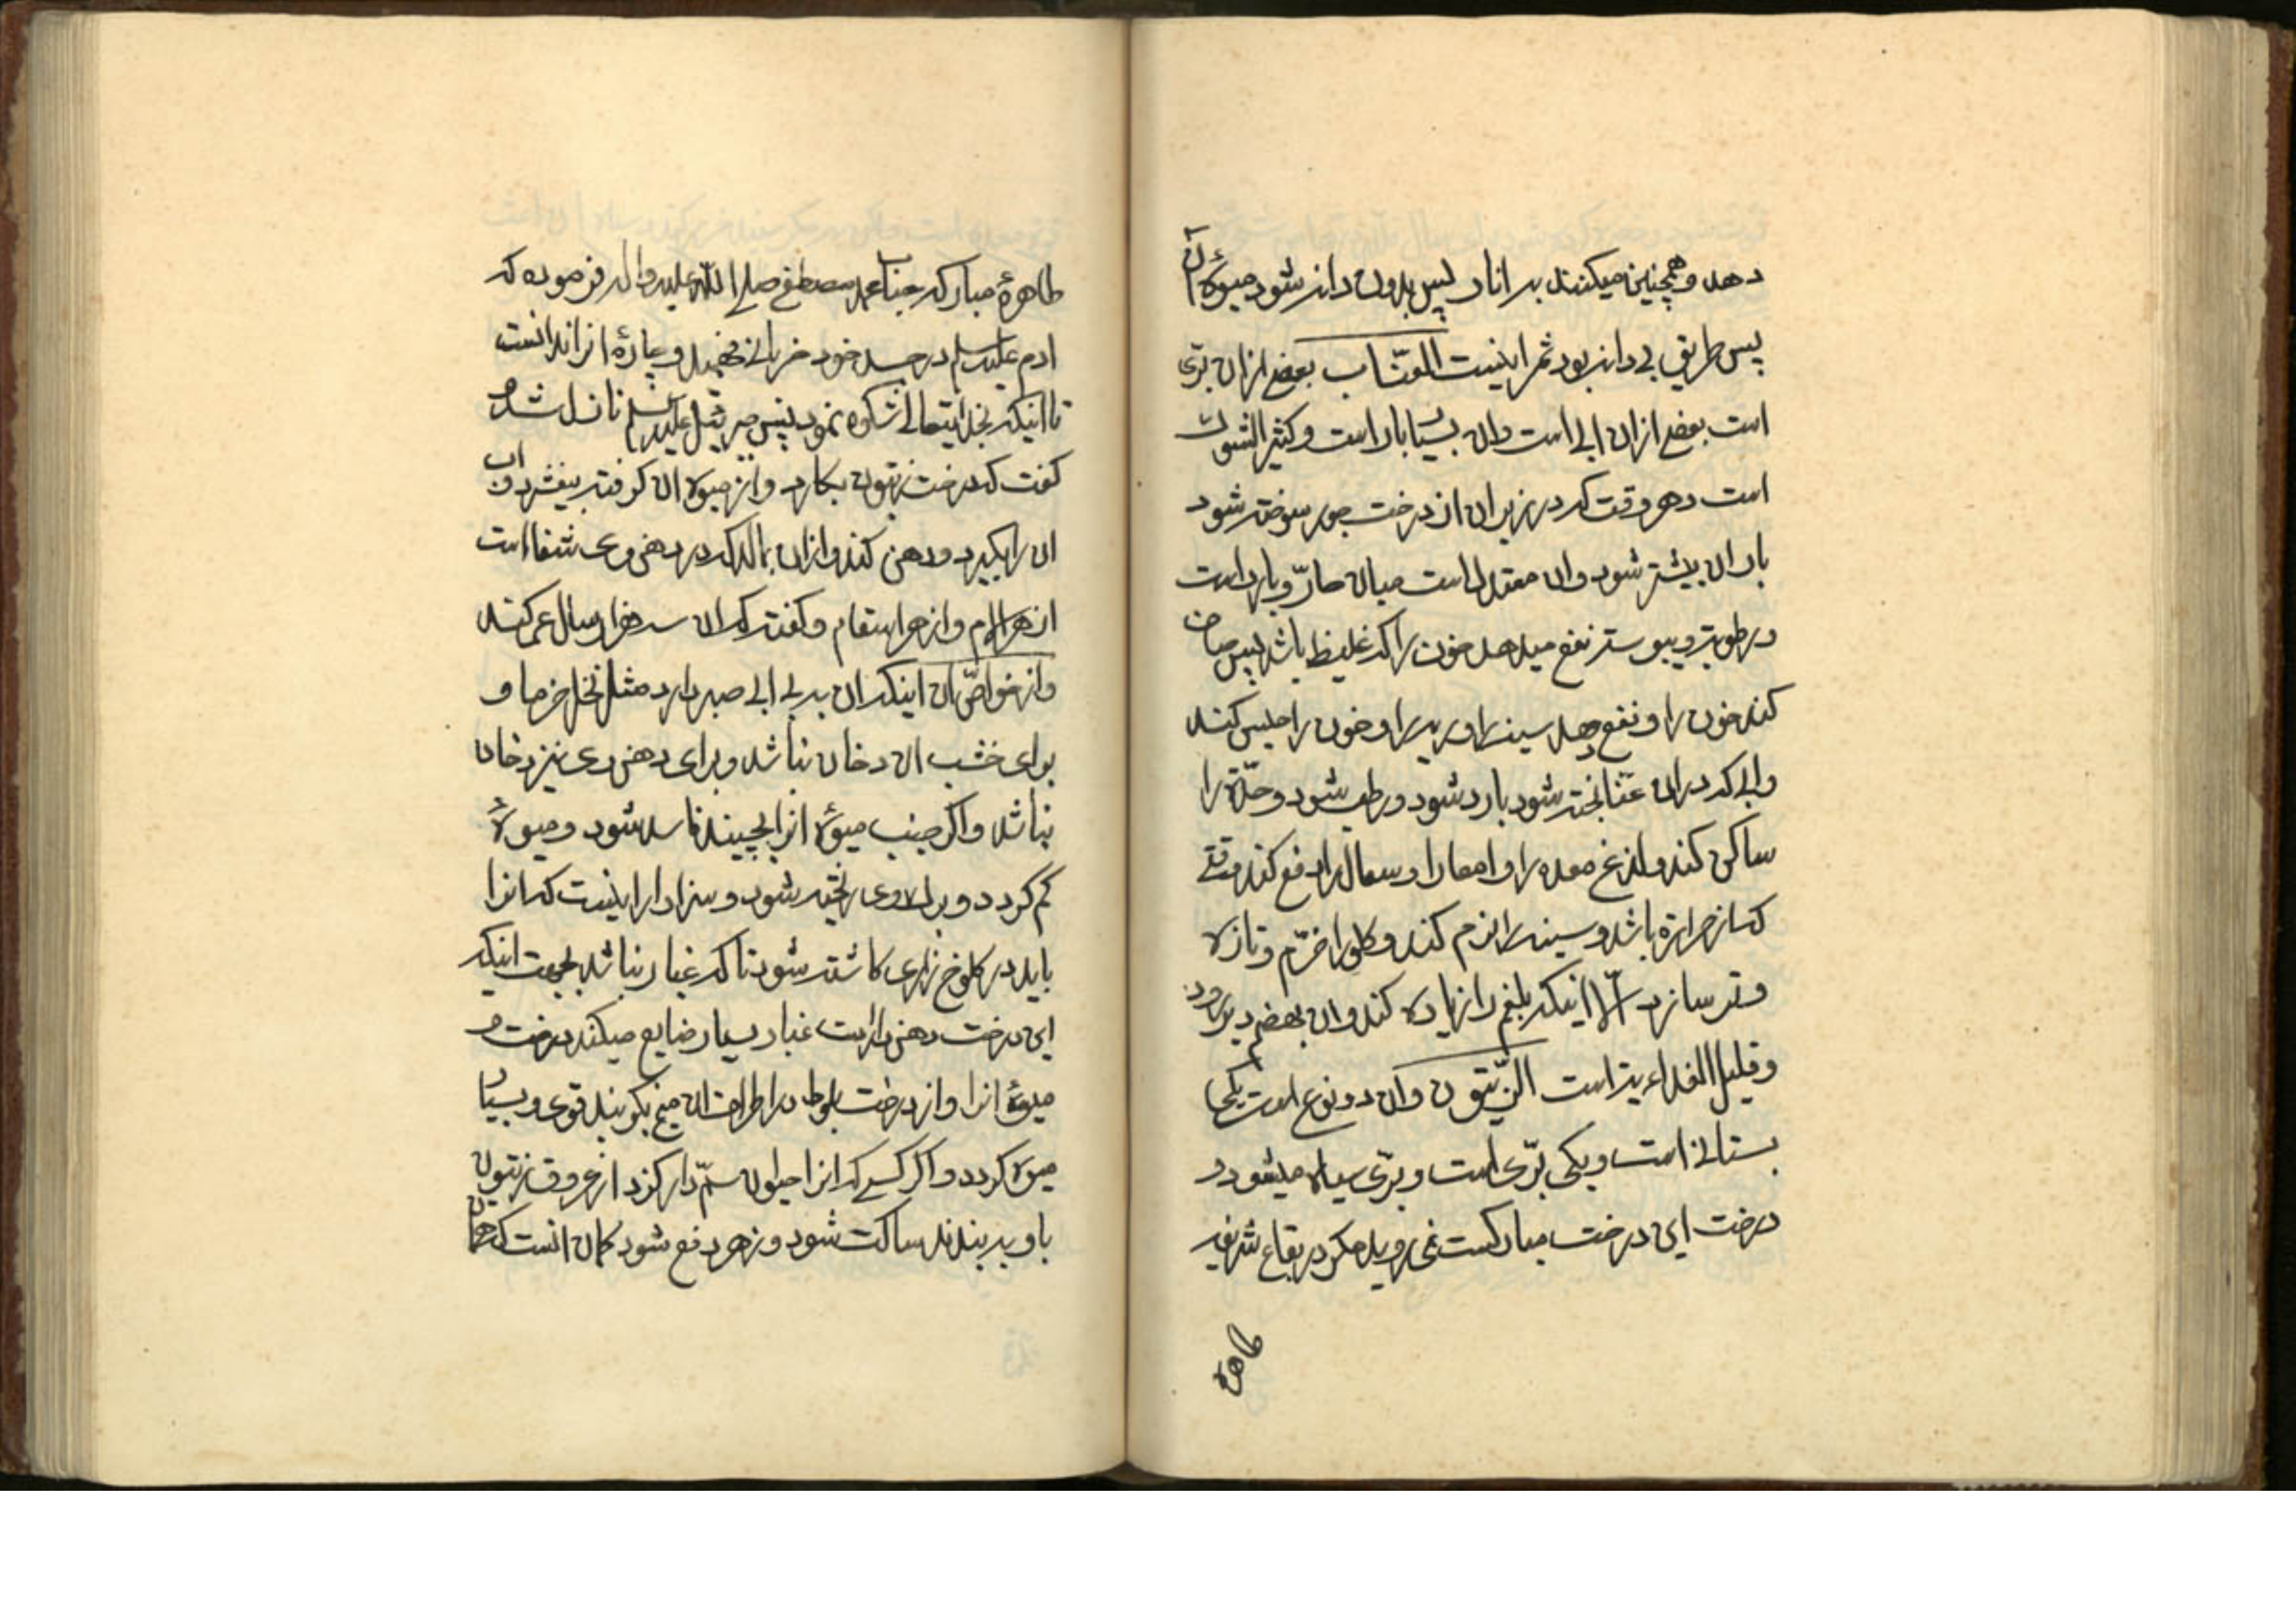 دهد وهمچنین میکنند به انار پس بدون دانه شود میوهٔ آن
پس طریق بی دانه بود ثمر اینست العنّاب بعضی ازان برّی
است بعضی ازان ابی است وان بسیا بار است وکثیر الشوک
است وهر وقت که در زیر ان از درخت جوز سوخته شود
بار ان بیشتر شود وان معتدل است میان حارّ وبارد است
ورطوبة ویبوسته نفع میدهد خون را که غلیظ باشد پس صاف
کند خون را ونفع دهد سینه را وریه را وخون را حبس کند
وابی که دران عنّا پخته شود بارد شود ورطب شود وحدّة را
ساکن کند ولذغ معده را وامعا را وسعال را دفع کند وقتی
که از حرارة باشد وسینه را نرم کند وکلو را خرّم وتازه
وتر سازد الّا اینکه بلغم را زیاده کند وان بهضم دیر رود
وقلیل الغداءیة است الزّیتون وآن دو نوع است یکی
بستانی است ویکی برّی است وبرّی سیاه میشود
درخت این درخت مبارکست نمی روید مکر در بقاع شریفه
طاهرة
طاهرهٔ مبارکه جناب محمد مصطفی صلی الله علیه واله فرموده که
ادم علیه السلم در جسد خود ضربانی فهمید وچارهٔ انرا ندانست
تا اینکه بخدایتعالی شکوه نمود پس جبرئیل علیه السلم نازل شد و
کفت که درخت زیتون بکارد واز میوه ان کرفته بیفشرد واب
ان را بکیرد ودهن کند وازان بمالد که در دهن وی شفا است
از هر الم واز هر اسقام وکفته که ان سه هزار سال عمر کند
واز خواصّ ان اینکه ان به بی ابی صبر دارد مثل نخل خرما و
برای خشب ان دخان نباشد وبرای دهن وی نیز دخان
نباشد واکر جنب میوهٔ انرا بچیند فاسد شود ومیوهٔ
کم کردد وبرک وی ریخته شود وسزاوار اینست که انرا
باید در کلوخ زاری کاشته شود تا که غبار نباشد بجهت اینکه
این درخت دهن دار است غبار بسیار ضایع میکند درخت و
میوهٔ انرا واز درخت بلوط در اطراف ان میخ بکوبند قوی وبسیار
میوه کردد واکر کسی که انرا حیوان سمّ دار کزد از عروق زیتون
باو به بندند ساکت شود وزهر دفع شود کمان انست که همان